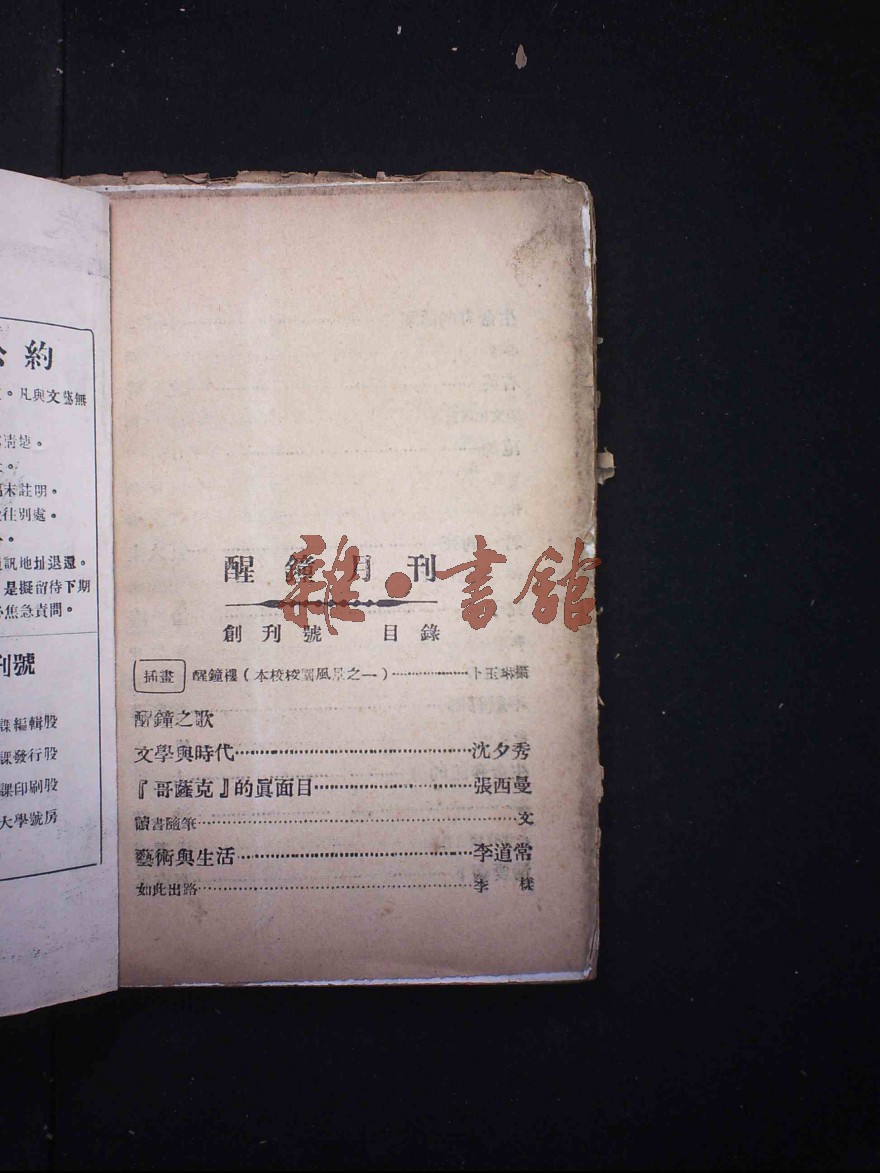 公約
。凡與文藝無
清楚。
。
末註明。
往別處。
。
訊地址退還。
是擬留待下期
焦急責問。
刊號
課編輯股
課發行股
課印刷股
大學號房
醒鐘月刊
雜·書館
創刊號 目錄
插畫 醒鐘樓(本校校園風景之一)……………卜玉琳攝
醒鐘之歌
文學與時代……………沈夕秀
『哥薩克』的眞面目……………張西曼
讀書隨筆……………文
藝術與生活……………李道常
如此出路……………李 樸